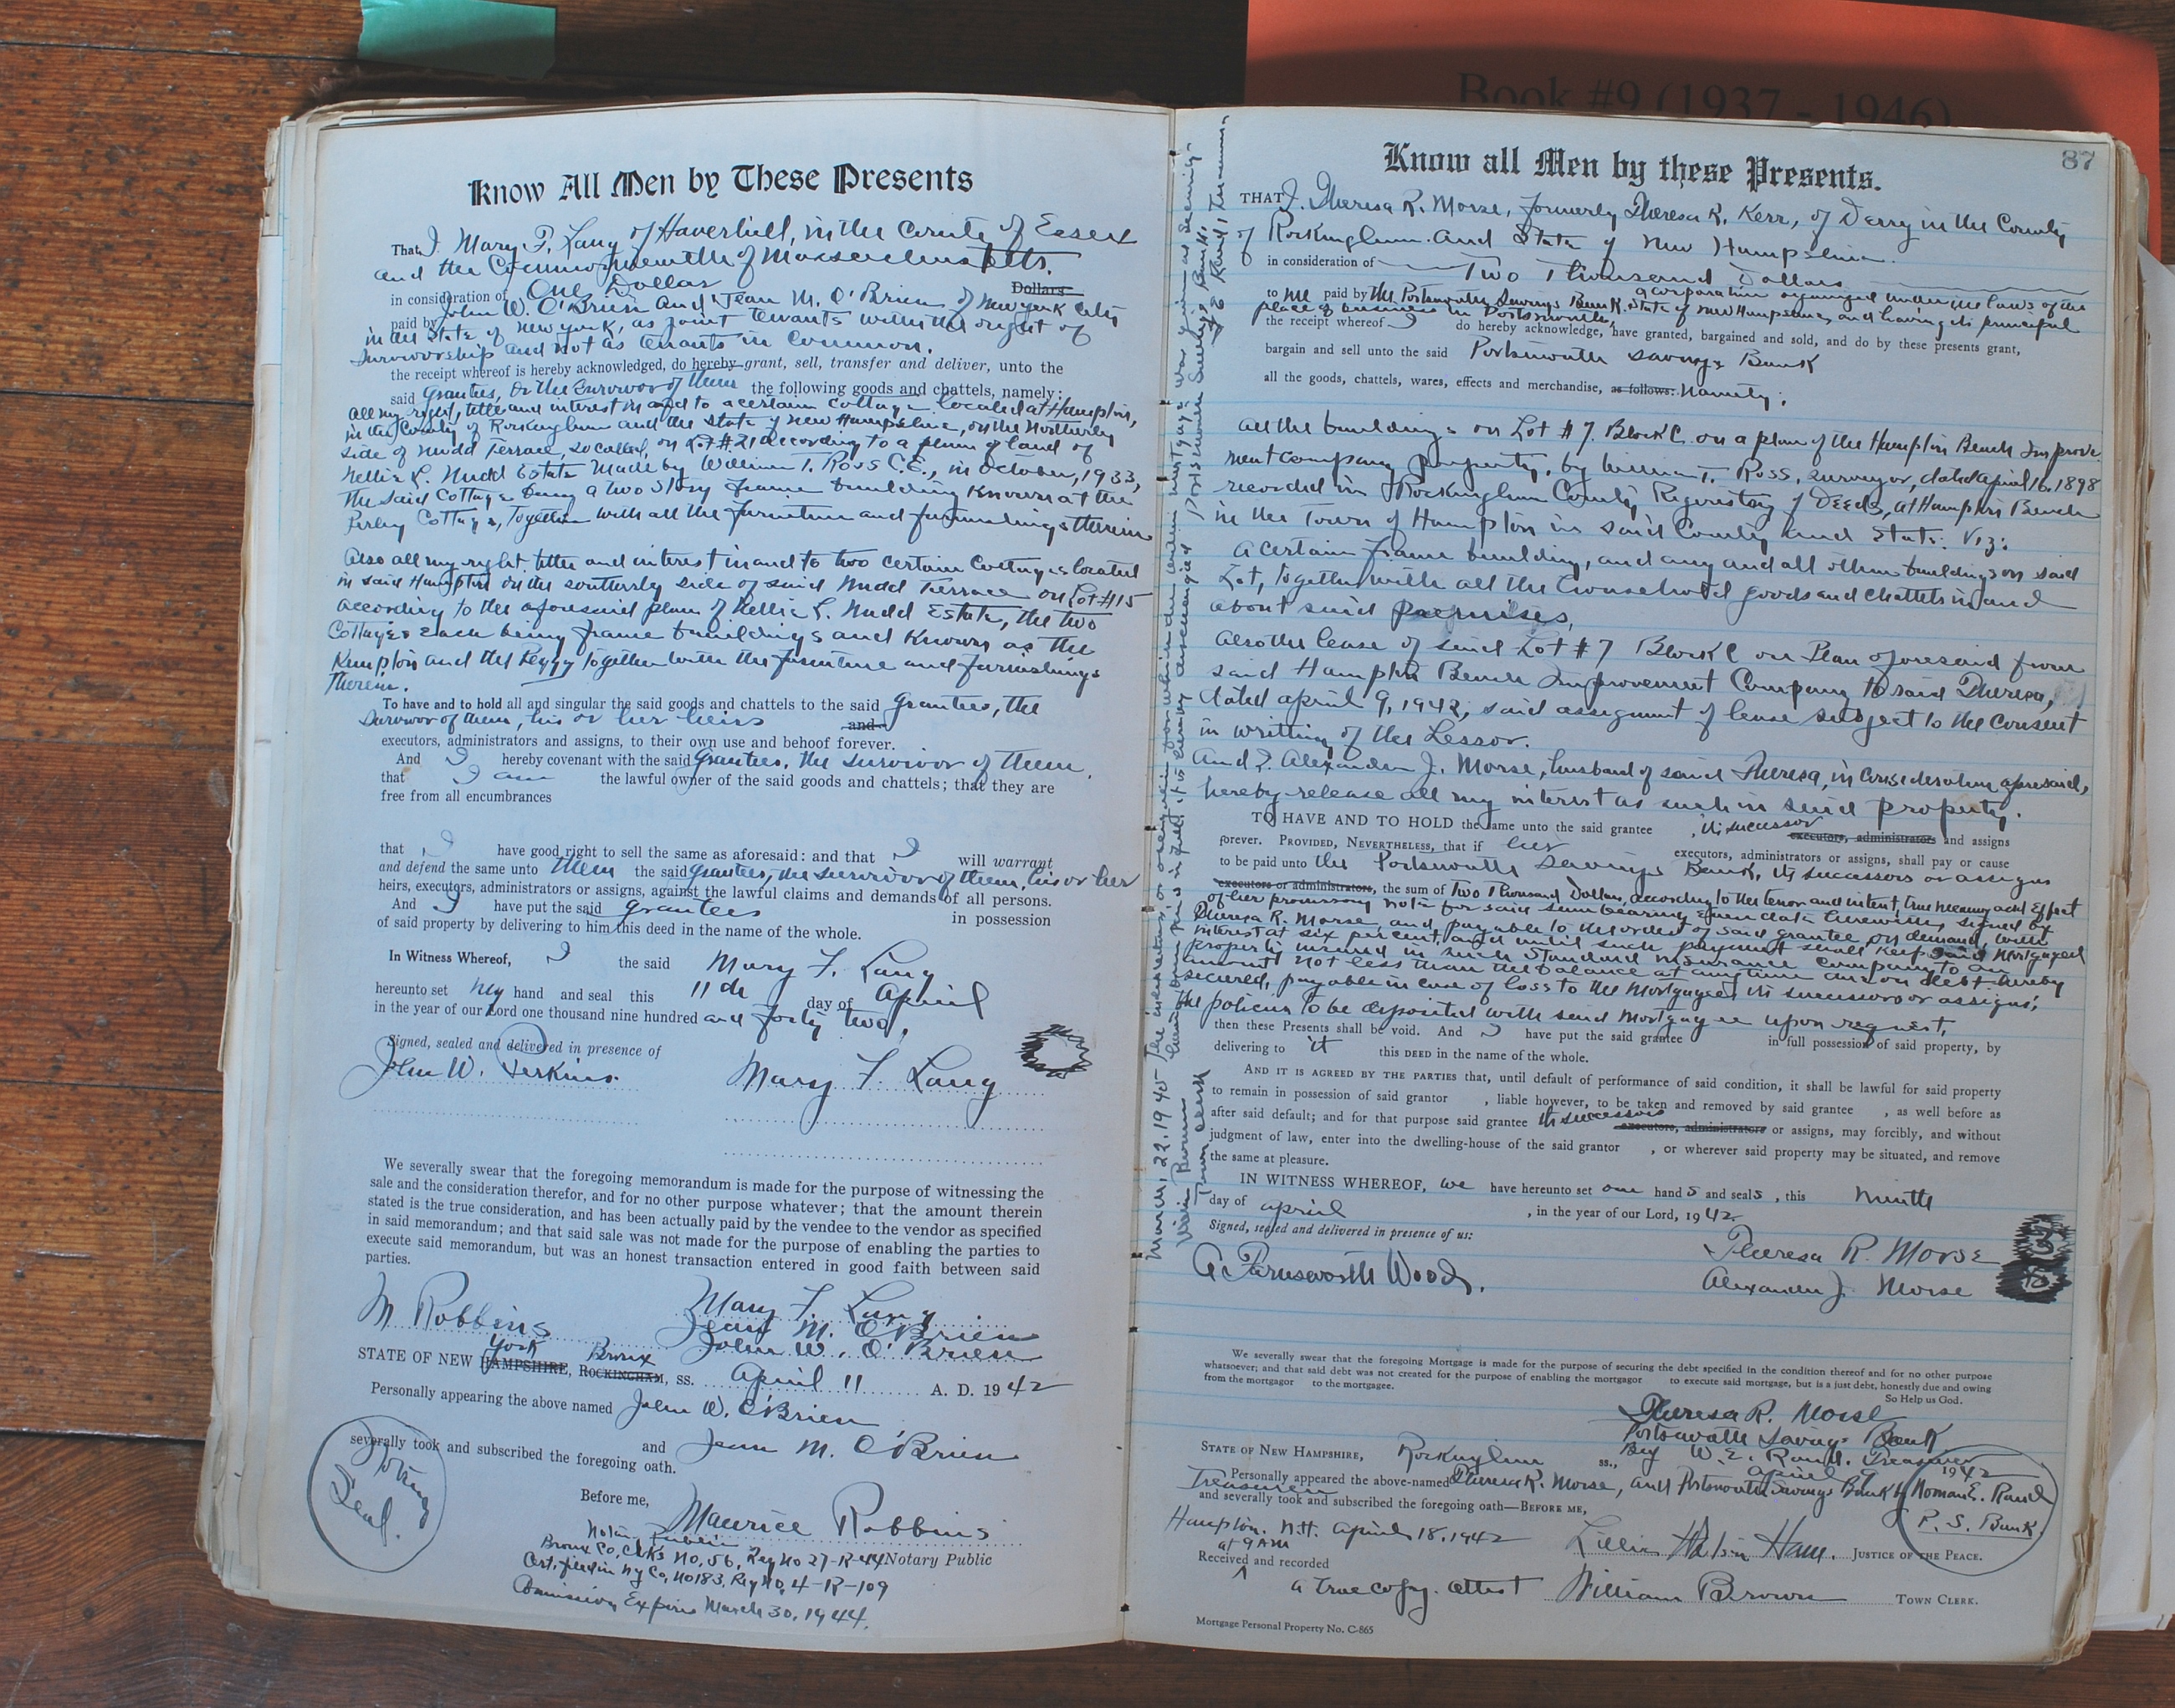 Book #9 (1937 - 1946)
Know All Men by These Presents
That I Mary F. Lang of Haverhill, in the County of Essex
and the Commonwealth of Massachusetts.
in consideration of One Dollar Dollars
paid by John W. O'Brien and Jean M. O'Brien of New York City
in the State of New York, as joint tenants with the right of
survivorship and not as tenants in common.
the receipt whereof is hereby acknowledged, do hereby grant, sell, transfer and deliver, unto the
said Grantees, or the survivor of them the following goods and chattels, namely:
All my right, title and interest in and to a certain cottage located at Hampton,
in the County of Rockingham and the State of New Hampshire, on the Northerly
side of Nudd Terrace, so called, on Lot #21 according to a plan of land of
Nellie L. Nudd Estate made by William T. Ross C.E., in October, 1933,
the said Cottage being a two story frame building known at the
Perley Cottage, together with all the furniture and furnishings therein
Also all my right title and interest in and to two certain Cottages located
in said Hampton on the southerly side of said Nudd Terrace on Lot #15
according to the aforesaid plan of Nellie L. Nudd Estate, the two
Cottages each being frame buildings and known as the
Kempton and the Peggy together with the furniture and furnishings
therein.
To have and to hold all and singular the said goods and chattels to the said Grantees, the
survivor of them, his or her heirs and
executors, administrators and assigns, to their own use and behoof forever.
And I hereby covenant with the said Grantees, the survivor of them,
that I am the lawful owner of the said goods and chattels; that they are
free from all encumbrances
that I have good right to sell the same as aforesaid: and that I will warrant
and defend the same unto them the said Grantees, the survivor of them, his or her
heirs, executors, administrators or assigns, against the lawful claims and demands of all persons.
And I have put the said grantees in possession
of said property by delivering to him this deed in the name of the whole.
In Witness Whereof, I the said Mary F. Lang
hereunto set my hand and seal this 11th day of April
in the year of our Lord one thousand nine hundred and forty two,
Signed, sealed and delivered in presence of
John W. Perkins. Mary F. Lang
We severally swear that the foregoing memorandum is made for the purpose of witnessing the
sale and the consideration therefor, and for no other purpose whatever; that the amount therein
stated is the true consideration, and has been actually paid by the vendee to the vendor as specified
in said memorandum; and that said sale was not made for the purpose of enabling the parties to
execute said memorandum, but was an honest transaction entered in good faith between said
parties.
M Robbins Mary F. Lang
Jean M. O'Brien
John W. O'Brien
York Bronx
STATE OF NEW HAMPSHIRE, ROCKINGHAM, ss. April 11 A. D. 1942
Personally appearing the above named John W. O'Brien
and Jean M. O'Brien
severally took and subscribed the foregoing oath.
Notary Seal.
Before me, Maurice Robbins
Notary Public Notary Public
Bronx Co, Clks No, 56, Reg No 27-R-44
Cert. filed in Ny Co, No 183, Reg No, 4-R-109
Commission Expires March 30, 1944.
87
Know all Men by these Presents.
THAT I, Theresa R. Morse, formerly Theresa R. Kerr, of Derry in the County
of Rockingham and State of New Hampshire.
in consideration of Two Thousand Dollars
to me paid by the Portsmouth Savings Bank, a corporation organized under the laws of the State of New Hampshire, and having its principal
place of business in Portsmouth,
the receipt whereof I do hereby acknowledge, have granted, bargained and sold, and do by these presents grant,
bargain and sell unto the said Portsmouth Savings Bank
all the goods, chattels, wares, effects and merchandise, as follows: Namely;
all the buildings on Lot #7. Block C. on a plan of the Hampton Beach Improve
ment company property, by William T. Ross, surveyor, dated April 16, 1898
recorded in Rockingham County Registry of Deeds, at Hampton Beach
in the Town of Hampton in said County and State. Viz:
A certain frame building, and any and all other buildings on said
Lot, together with all the household goods and chattels in and
about said premises,
Also the lease of said Lot #7 Block C on Plan aforesaid from
said Hampton Beach Improvement Company to said Theresa,
dated April 9, 1942, said assigment of lease subject to the consent
in writting of the Lessor.
And I, Alexander J. Morse, husband of said Theresa, in consideration aforesaid,
hereby release all my interest as such in said property.
TO HAVE AND TO HOLD the same unto the said grantee, its successor executors, administrators and assigns
forever. PROVIDED, NEVERTHELESS, that if her executors, administrators or assigns, shall pay or cause
to be paid unto the Portsmouth Savings Bank, its successors or assigns
executors or administrators, the sum of Two Thousand Dollars, according to the tenor and intent, true meaning and effect
of her promissory note for said sum bearing even date herewith signed by
Theresa R. Morse and payable to the order of said grantee on demand, with
interest at six percent, and until such payment shall keep said mortgaged
property insured in such standard insurance company to an
amount not less than the balance at anytime due on debt hereby
secured, payable in case of loss to the mortgagee, its successors or assigns,
the policies to be deposited with said mortgagee upon request,
then these Presents shall be void. And I have put the said grantee in full possession of said property, by
delivering to it this DEED in the name of the whole.
AND IT IS AGREED BY THE PARTIES that, until default of performance of said condition, it shall be lawful for said property
to remain in possession of said grantor , liable however, to be taken and removed by said grantee , as well before as
after said default; and for that purpose said grantee its successors executors, administrators or assigns, may forcibly, and without
judgment of law, enter into the dwelling-house of the said grantor , or wherever said property may be situated, and remove
the same at pleasure.
IN WITNESS WHEREOF, we have hereunto set our hands and seals, this ninth
day of April , in the year of our Lord, 1942
Signed, sealed and delivered in presence of us:
A Farnsworth Wood. Theresa R. Morse
Alexander J. Morse
We severally swear that the foregoing Mortgage is made for the purpose of securing the debt specified in the condition thereof and for no other purpose
whatsoever; and that said debt was not created for the purpose of enabling the mortgagor to execute said mortgage, but is a just debt, honestly due and owing
from the mortgagor to the mortgagee. So Help us God.
Theresa R. Morse
Portsmouth Savings Bank
By W. E. Rand. Treasurer
STATE OF NEW HAMPSHIRE, Rockingham ss., April 9 1942
Personally appeared the above-named Theresa R. Morse, and Portsmouth Savings Bank by Norman E. Rand
Treasurer
and severally took and subscribed the foregoing oath—BEFORE ME,
P. S. Bank.
Hampton. N.H. April 18, 1942 Lillian Ham. JUSTICE OF THE PEACE.
at 9 AM
Received and recorded
a True copy. attest William Brown TOWN CLERK.
Mortgage Personal Property No. C-865
March 22, 1945
William Brown
Town Clerk